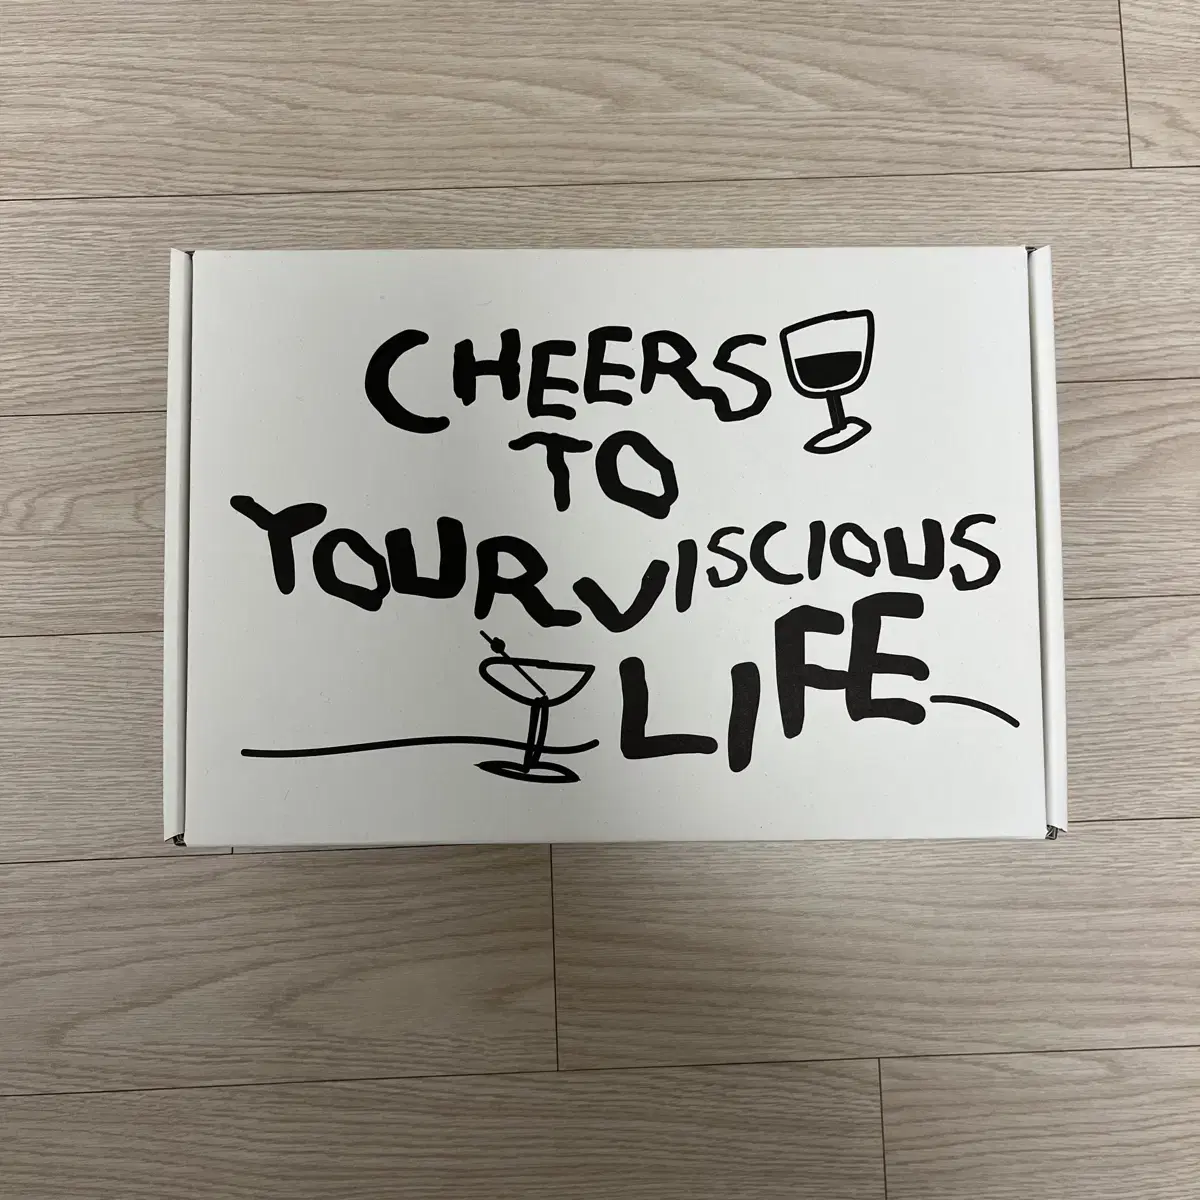 CHEERS
TO
YOUR VISCIOUS
LIFE